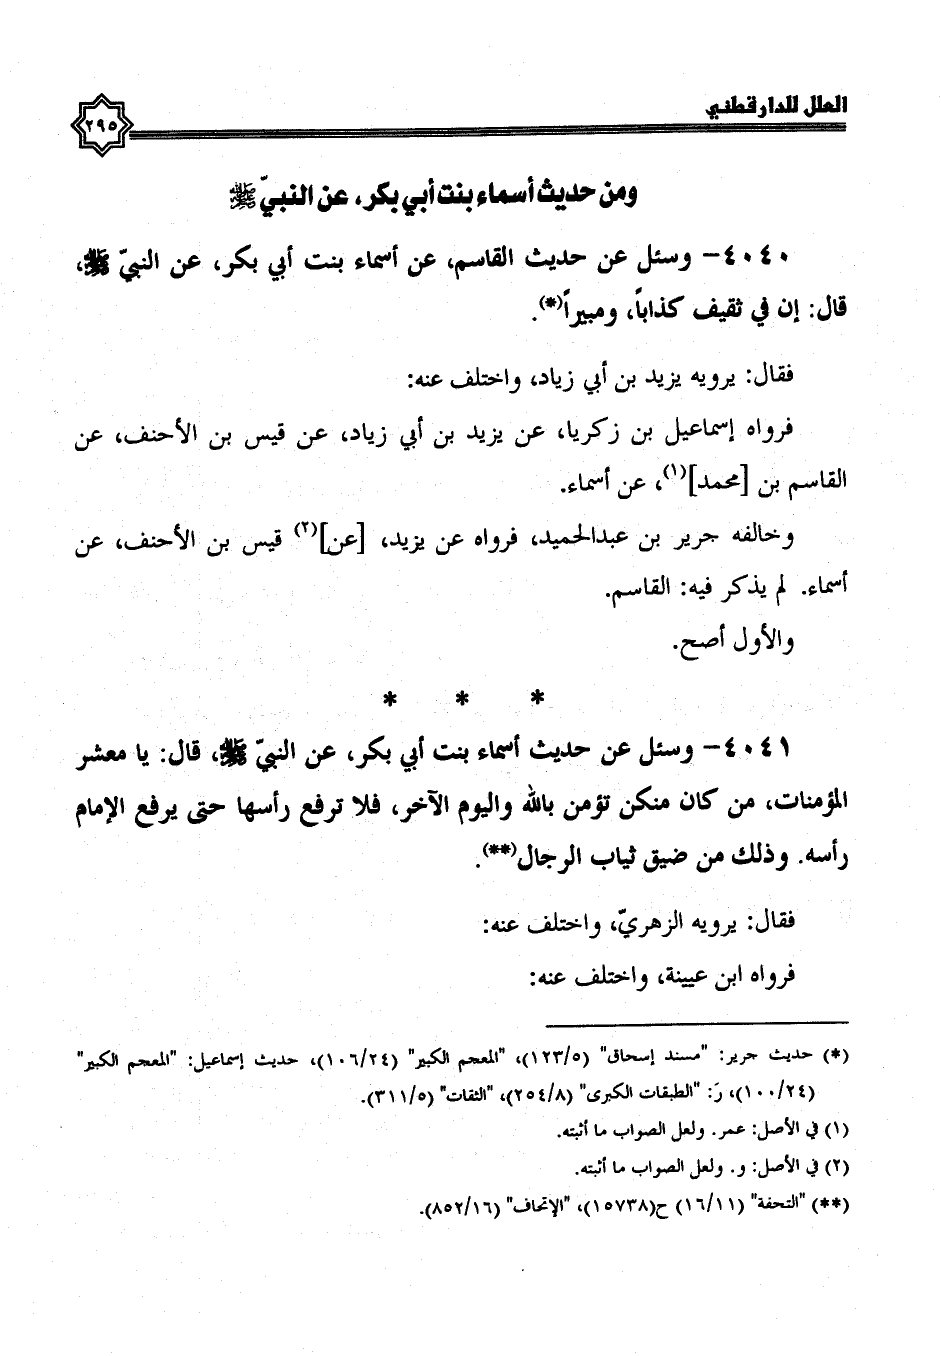 العلل للدارقطني
٢٩٥
ومن حديث أسماء بنت أبي بكر، عن النبيّ ﷺ
٤٠٤٠- وسئل عن حديث القاسم، عن أسماء بنت أبي بكر، عن النبيّ ﷺ،
قال: إن في ثقيف كذاباً، ومبيراً(*).
فقال: يرويه يزيد بن أبي زياد، واختلف عنه:
فرواه إسماعيل بن زكريا، عن يزيد بن أبي زياد، عن قيس بن الأحنف، عن
القاسم بن [محمد](١)، عن أسماء.
وخالفه جرير بن عبدالحميد، فرواه عن يزيد، [عن](٢) قيس بن الأحنف، عن
أسماء. لم يذكر فيه: القاسم.
والأول أصح.
* * *
٤٠٤١- وسئل عن حديث أسماء بنت أبي بكر، عن النبيّ ﷺ، قال: يا معشر
المؤمنات، من كان منكن تؤمن بالله واليوم الآخر، فلا ترفع رأسها حتى يرفع الإمام
رأسه. وذلك من ضيق ثياب الرجال(**).
فقال: يرويه الزهريّ، واختلف عنه:
فرواه ابن عيينة، واختلف عنه:
(*) حديث جرير: "مسند إسحاق" (١٢٣/٥)، "المعجم الكبير" (١٠٦/٢٤)، حديث إسماعيل: "المعجم الكبير"
(١٠٠/٢٤)، رَ: "الطبقات الكبرى" (٢٥٤/٨)، "الثقات" (٣١١/٥).
(١) في الأصل: عمر. ولعل الصواب ما أثبته.
(٢) في الأصل: و. ولعل الصواب ما أثبته.
(**) "التحفة" (١٦/١١) ح(١٥٧٣٨)، "الإتحاف" (٨٥٢/١٦).